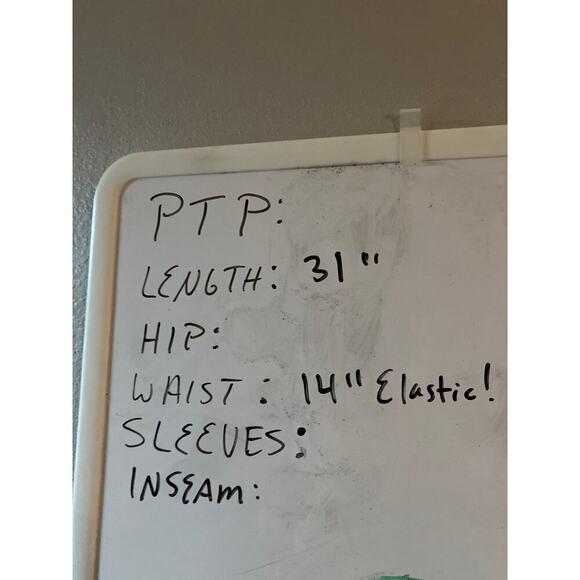 PTP:
LENGTH: 31"
HIP:
WAIST: 14" Elastic!
SLEEVES:
INSEAM: